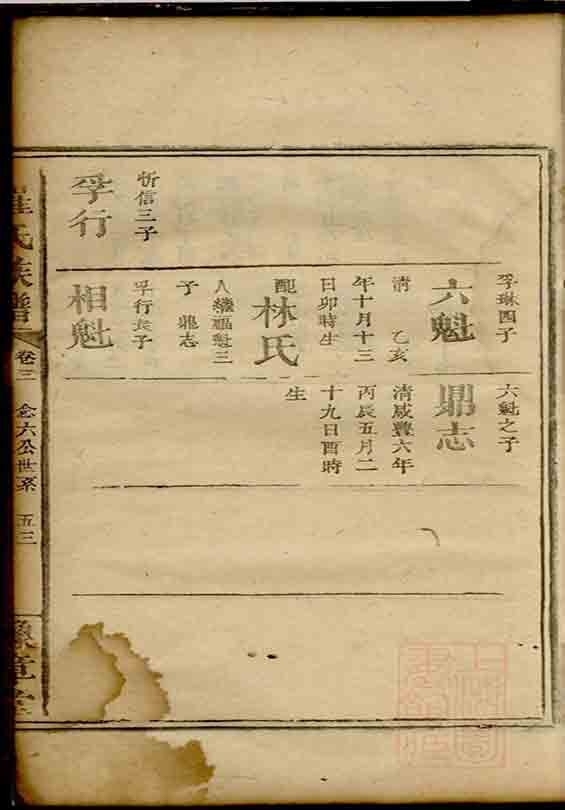 孚琳四子
六魁
清　乙亥
年十月十三
日卯時生
配
林氏
人繼福魁三
子　鼎志
六魁之子
鼎志
清咸豐六年
丙辰五月二
十九日酉時
生
忻信三子
孚行
孚行長子
相魁
氏族譜
卷三
念六公世系
五三
豫章堂